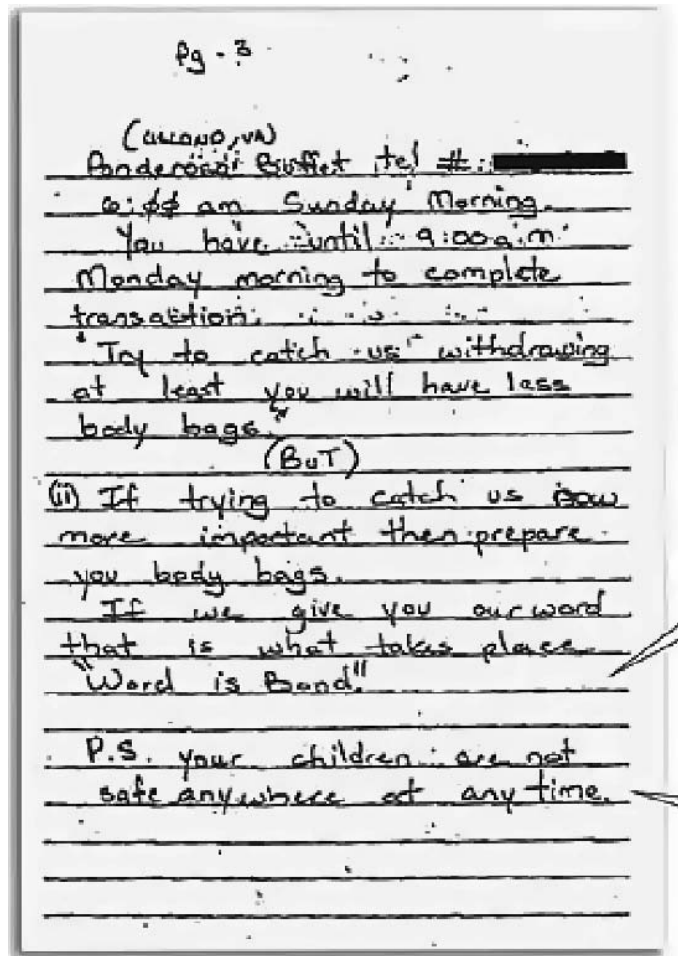 Pg - 3
(ASHLAND, VA)
Ponderosa Buffet tel #:
6:00 am Sunday Morning.
You have until 9:00 a.m.
Monday morning to complete
transaction.
"Try to catch us" withdrawing
at least you will have less
body bags."
(BUT)
(ii) If trying to catch us now
more important then prepare
you body bags.
If we give you our word
that is what takes place
"Word is Bond"
P.S. your children are not
safe anywhere at any time.